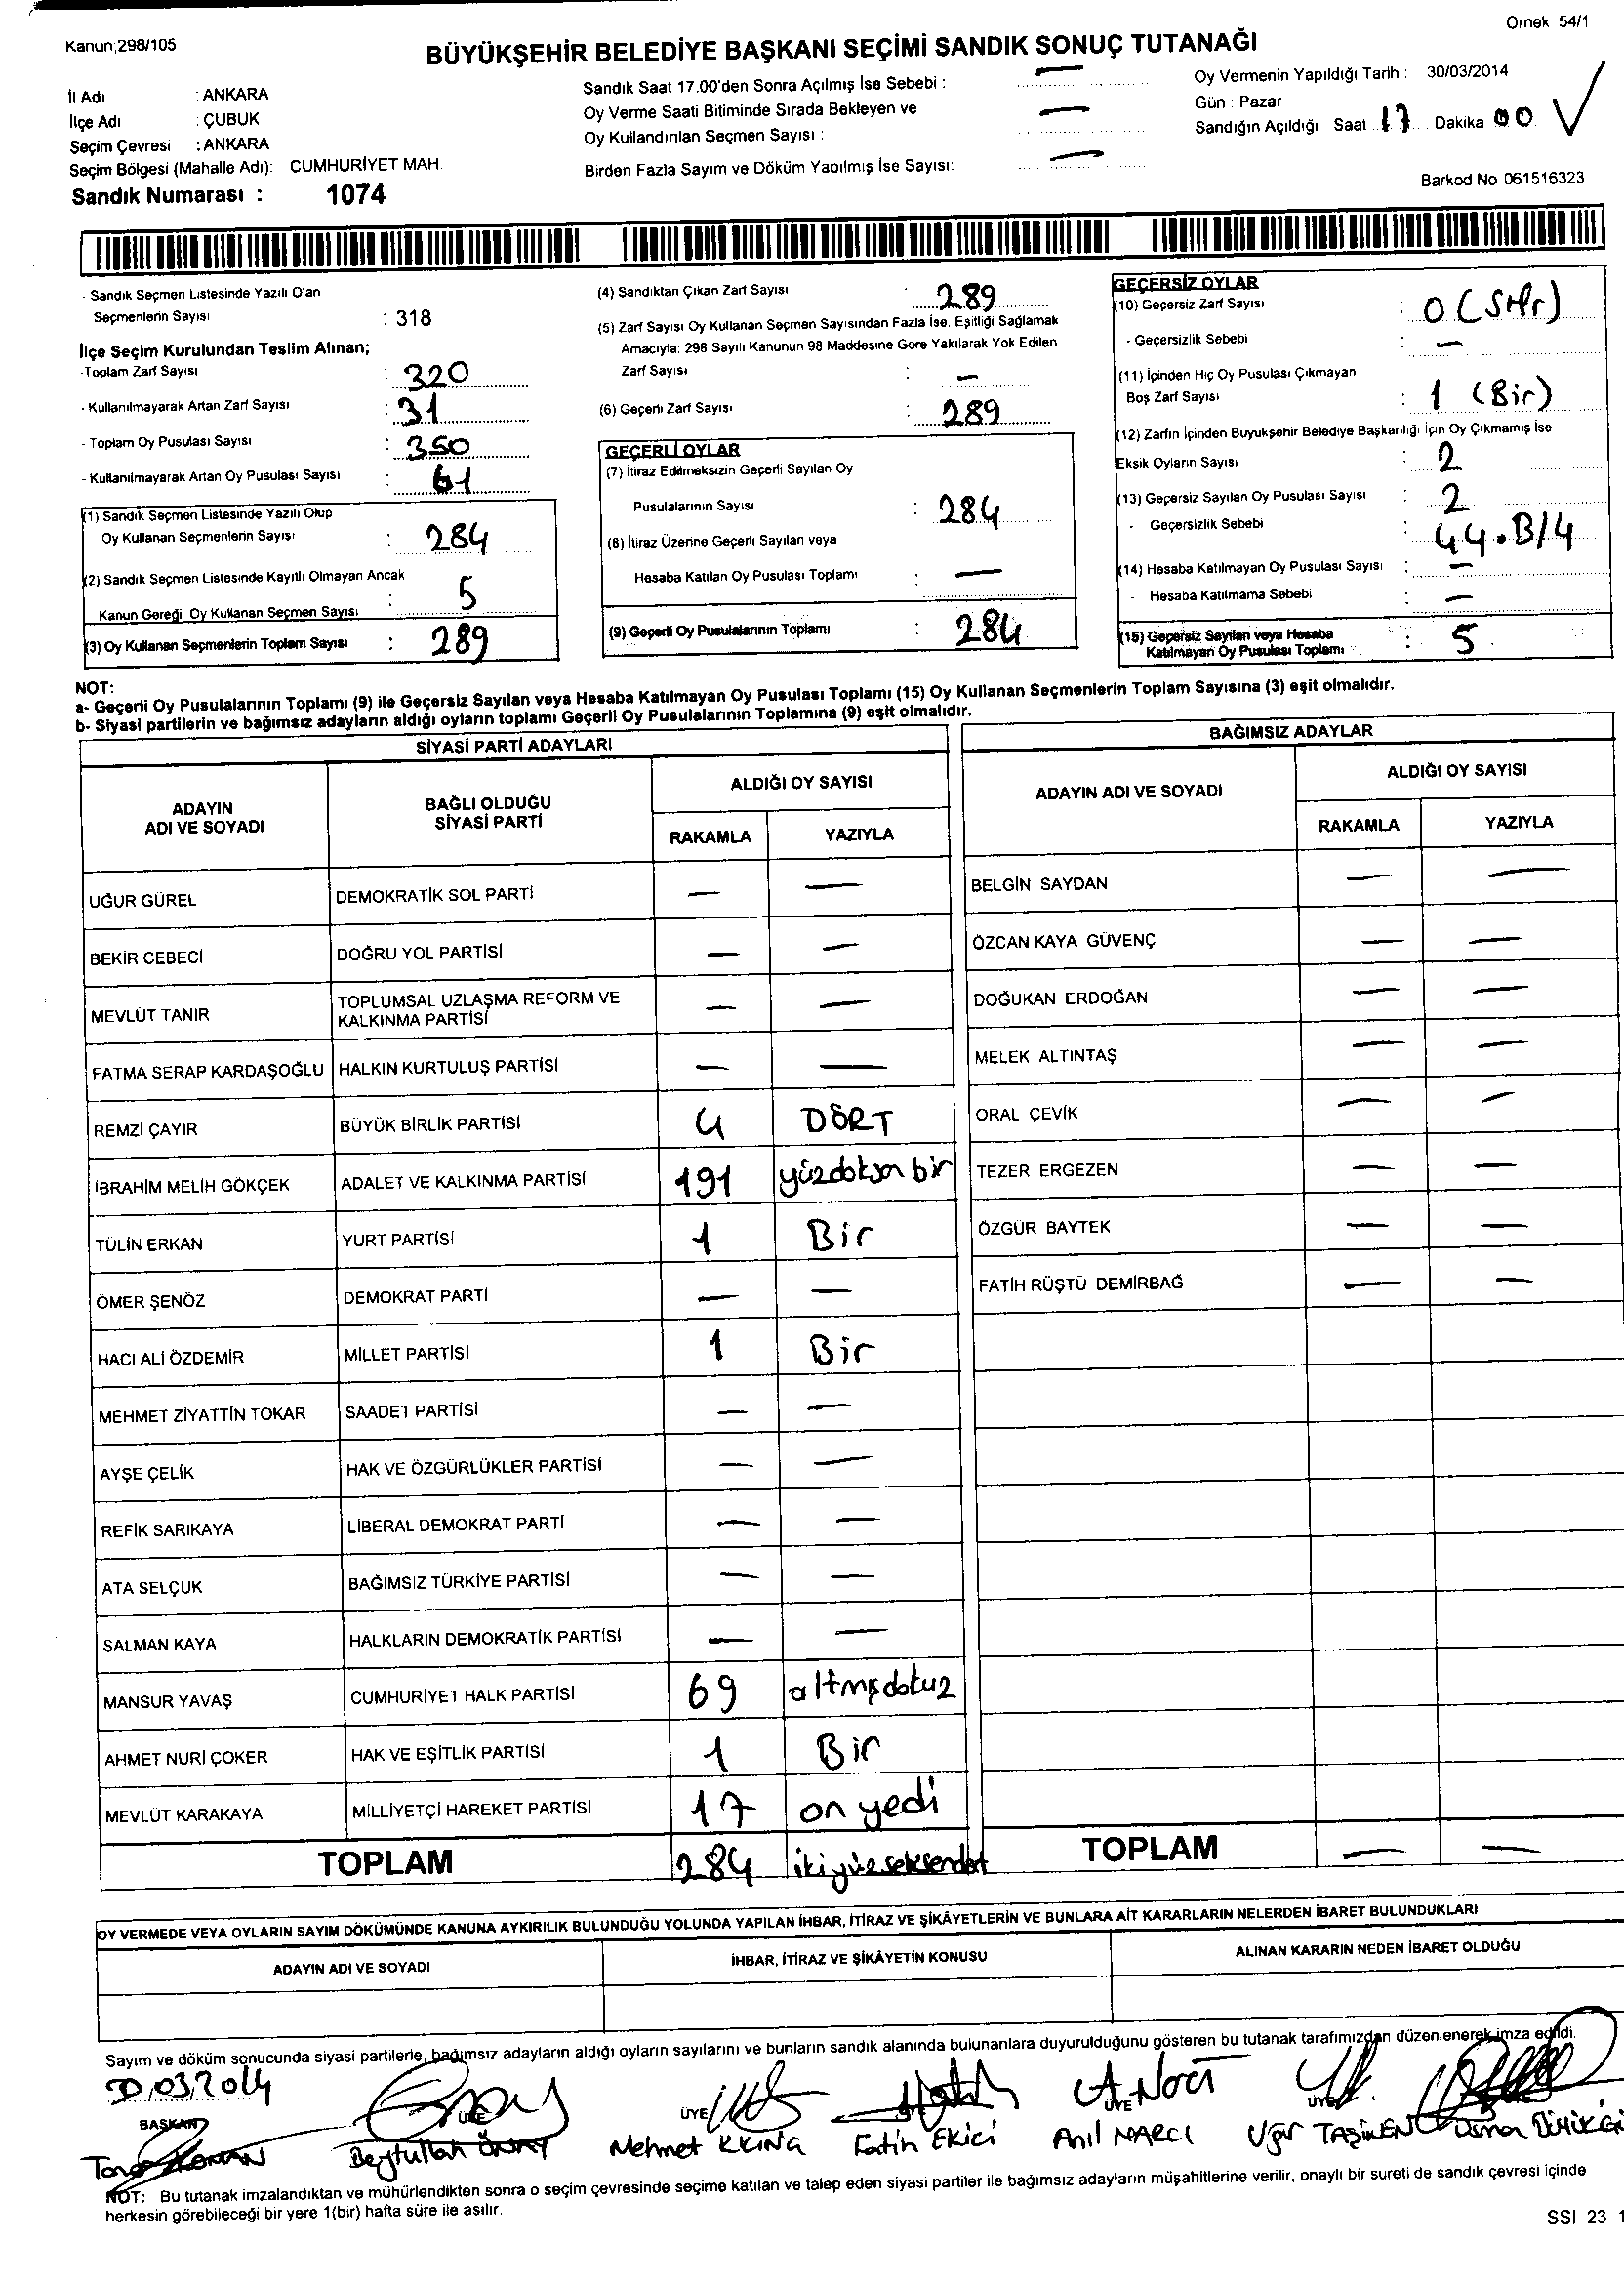 Kanun;298/105
Ornek 54/1
BÜYÜKŞEHİR BELEDİYE BAŞKANI SEÇİMİ SANDIK SONUÇ TUTANAĞI
İl Adı : ANKARA
İlçe Adı : ÇUBUK
Seçim Çevresi : ANKARA
Seçim Bölgesi (Mahalle Adı): CUMHURİYET MAH.
Sandık Numarası : 1074
Sandık Saat 17.00'den Sonra Açılmış İse Sebebi : —
Oy Verme Saati Bitiminde Sırada Bekleyen ve —
Oy Kullandırılan Seçmen Sayısı :
Birden Fazla Sayım ve Döküm Yapılmış İse Sayısı: —
Oy Vermenin Yapıldığı Tarih : 30/03/2014
Gün : Pazar
Sandığın Açıldığı Saat 17 Dakika 00
Barkod No 061516323
- Sandık Seçmen Listesinde Yazılı Olan
Seçmenlerin Sayısı : 318
İlçe Seçim Kurulundan Teslim Alınan;
-Toplam Zarf Sayısı : 320
- Kullanılmayarak Artan Zarf Sayısı : 31
- Toplam Oy Pusulası Sayısı : 350
- Kullanılmayarak Artan Oy Pusulası Sayısı : 61
(1) Sandık Seçmen Listesinde Yazılı Olup
Oy Kullanan Seçmenlerin Sayısı : 284
(2) Sandık Seçmen Listesinde Kayıtlı Olmayan Ancak
Kanun Gereği Oy Kullanan Seçmen Sayısı : 5
(3) Oy Kullanan Seçmenlerin Toplam Sayısı : 289
(4) Sandıktan Çıkan Zarf Sayısı : 289
(5) Zarf Sayısı Oy Kullanan Seçmen Sayısından Fazla İse, Eşitliği Sağlamak
Amacıyla; 298 Sayılı Kanunun 98 Maddesine Göre Yakılarak Yok Edilen
Zarf Sayısı : —
(6) Geçerli Zarf Sayısı : 289
GEÇERLİ OYLAR
(7) İtiraz Edilmeksizin Geçerli Sayılan Oy
Pusulalarının Sayısı : 284
(8) İtiraz Üzerine Geçerli Sayılan veya
Hesaba Katılan Oy Pusulası Toplamı : —
(9) Geçerli Oy Pusulalarının Toplamı : 284
GEÇERSİZ OYLAR
(10) Geçersiz Zarf Sayısı : 0 (Sıfır)
- Geçersizlik Sebebi : —
(11) İçinden Hiç Oy Pusulası Çıkmayan
Boş Zarf Sayısı : 1 (Bir)
(12) Zarfın İçinden Büyükşehir Belediye Başkanlığı İçin Oy Çıkmamış İse
Eksik Oyların Sayısı : 2
(13) Geçersiz Sayılan Oy Pusulası Sayısı : 2
- Geçersizlik Sebebi : 44.B/4
(14) Hesaba Katılmayan Oy Pusulası Sayısı : —
- Hesaba Katılmama Sebebi : —
(15) Geçersiz Sayılan veya Hesaba
Katılmayan Oy Pusulası Toplamı : 5
NOT:
a- Geçerli Oy Pusulalarının Toplamı (9) ile Geçersiz Sayılan veya Hesaba Katılmayan Oy Pusulası Toplamı (15) Oy Kullanan Seçmenlerin Toplam Sayısına (3) eşit olmalıdır.
b- Siyasi partilerin ve bağımsız adayların aldığı oyların toplamı Geçerli Oy Pusulalarının Toplamına (9) eşit olmalıdır.
SİYASİ PARTİ ADAYLARI
ADAYIN ADI VE SOYADI BAĞLI OLDUĞU SİYASİ PARTİ ALDIĞI OY SAYISI
RAKAMLA YAZIYLA
UĞUR GÜREL DEMOKRATİK SOL PARTİ — —
BEKİR CEBECİ DOĞRU YOL PARTİSİ — —
MEVLÜT TANIR TOPLUMSAL UZLAŞMA REFORM VE KALKINMA PARTİSİ — —
FATMA SERAP KARDAŞOĞLU HALKIN KURTULUŞ PARTİSİ — —
REMZİ ÇAYIR BÜYÜK BİRLİK PARTİSİ 4 DÖRT
İBRAHİM MELİH GÖKÇEK ADALET VE KALKINMA PARTİSİ 191 yüzdoksan bir
TÜLİN ERKAN YURT PARTİSİ 1 Bir
ÖMER ŞENÖZ DEMOKRAT PARTİ — —
HACI ALİ ÖZDEMİR MİLLET PARTİSİ 1 Bir
MEHMET ZİYATTİN TOKAR SAADET PARTİSİ — —
AYŞE ÇELİK HAK VE ÖZGÜRLÜKLER PARTİSİ — —
REFİK SARIKAYA LİBERAL DEMOKRAT PARTİ — —
ATA SELÇUK BAĞIMSIZ TÜRKİYE PARTİSİ — —
SALMAN KAYA HALKLARIN DEMOKRATİK PARTİSİ — —
MANSUR YAVAŞ CUMHURİYET HALK PARTİSİ 69 altmışdokuz
AHMET NURİ ÇOKER HAK VE EŞİTLİK PARTİSİ 1 Bir
MEVLÜT KARAKAYA MİLLİYETÇİ HAREKET PARTİSİ 17 on yedi
TOPLAM 284 ikiyüzseksendört
BAĞIMSIZ ADAYLAR
ADAYIN ADI VE SOYADI ALDIĞI OY SAYISI
RAKAMLA YAZIYLA
BELGİN SAYDAN — —
ÖZCAN KAYA GÜVENÇ — —
DOĞUKAN ERDOĞAN — —
MELEK ALTINTAŞ — —
ORAL ÇEVİK — —
TEZER ERGEZEN — —
ÖZGÜR BAYTEK — —
FATİH RÜŞTÜ DEMİRBAĞ — —
TOPLAM — —
OY VERMEDE VEYA OYLARIN SAYIM DÖKÜMÜNDE KANUNA AYKIRILIK BULUNDUĞU YOLUNDA YAPILAN İHBAR, İTİRAZ VE ŞİKÂYETLERİN VE BUNLARA AİT KARARLARIN NELERDEN İBARET BULUNDUKLARI
ADAYIN ADI VE SOYADI İHBAR, İTİRAZ VE ŞİKÂYETİN KONUSU ALINAN KARARIN NEDEN İBARET OLDUĞU
Sayım ve döküm sonucunda siyasi partilerle, bağımsız adayların aldığı oyların sayılarını ve bunların sandık alanında bulunanlara duyurulduğunu gösteren bu tutanak tarafımızdan düzenlenerek imza edildi.
30,03,2014
BAŞKAN ÜYE ÜYE ÜYE ÜYE ÜYE
Beytullah Mehmet Fatih Ekici Anıl NARCI Uğur
NOT: Bu tutanak imzalandıktan ve mühürlendikten sonra o seçim çevresinde seçime katılan ve talep eden siyasi partiler ile bağımsız adayların müşahitlerine verilir, onaylı bir sureti de sandık çevresi içinde
herkesin görebileceği bir yere 1(bir) hafta süre ile asılır.
SSI 23 1